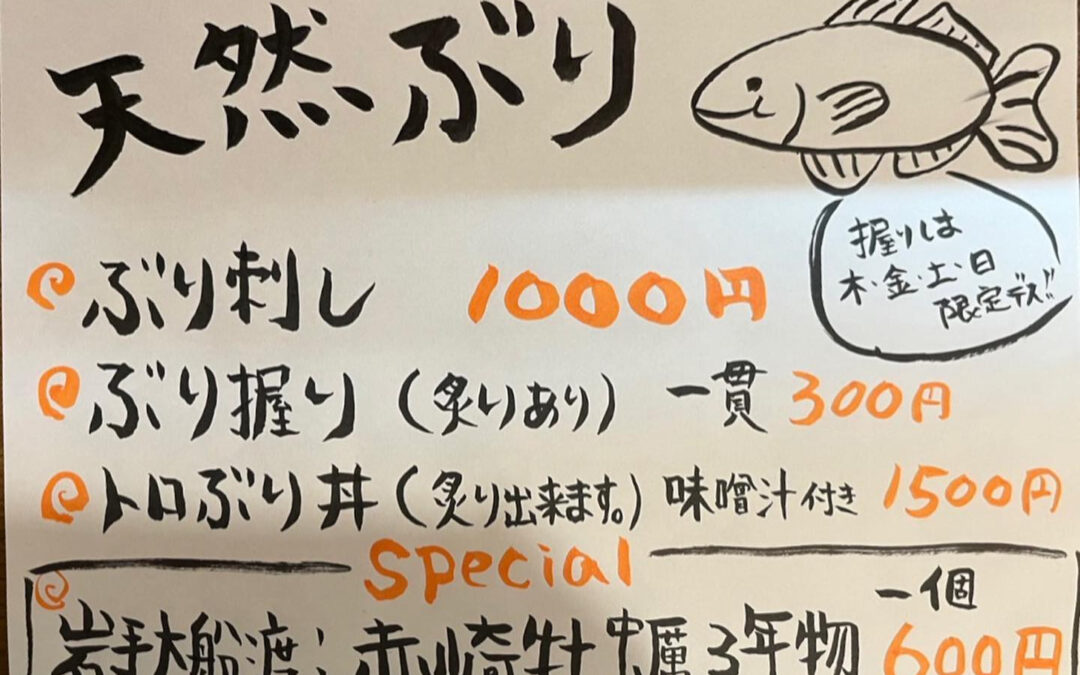 天然ぶり
握りは
木・金・土・日
限定デス!!
ぶり刺し 1000円
ぶり握り(炙りあり) 一貫 300円
トロぶり丼(炙り出来ます。) 味噌汁付き 1500円
special
一個
岩手大船渡:赤崎牡蠣3年物 600円